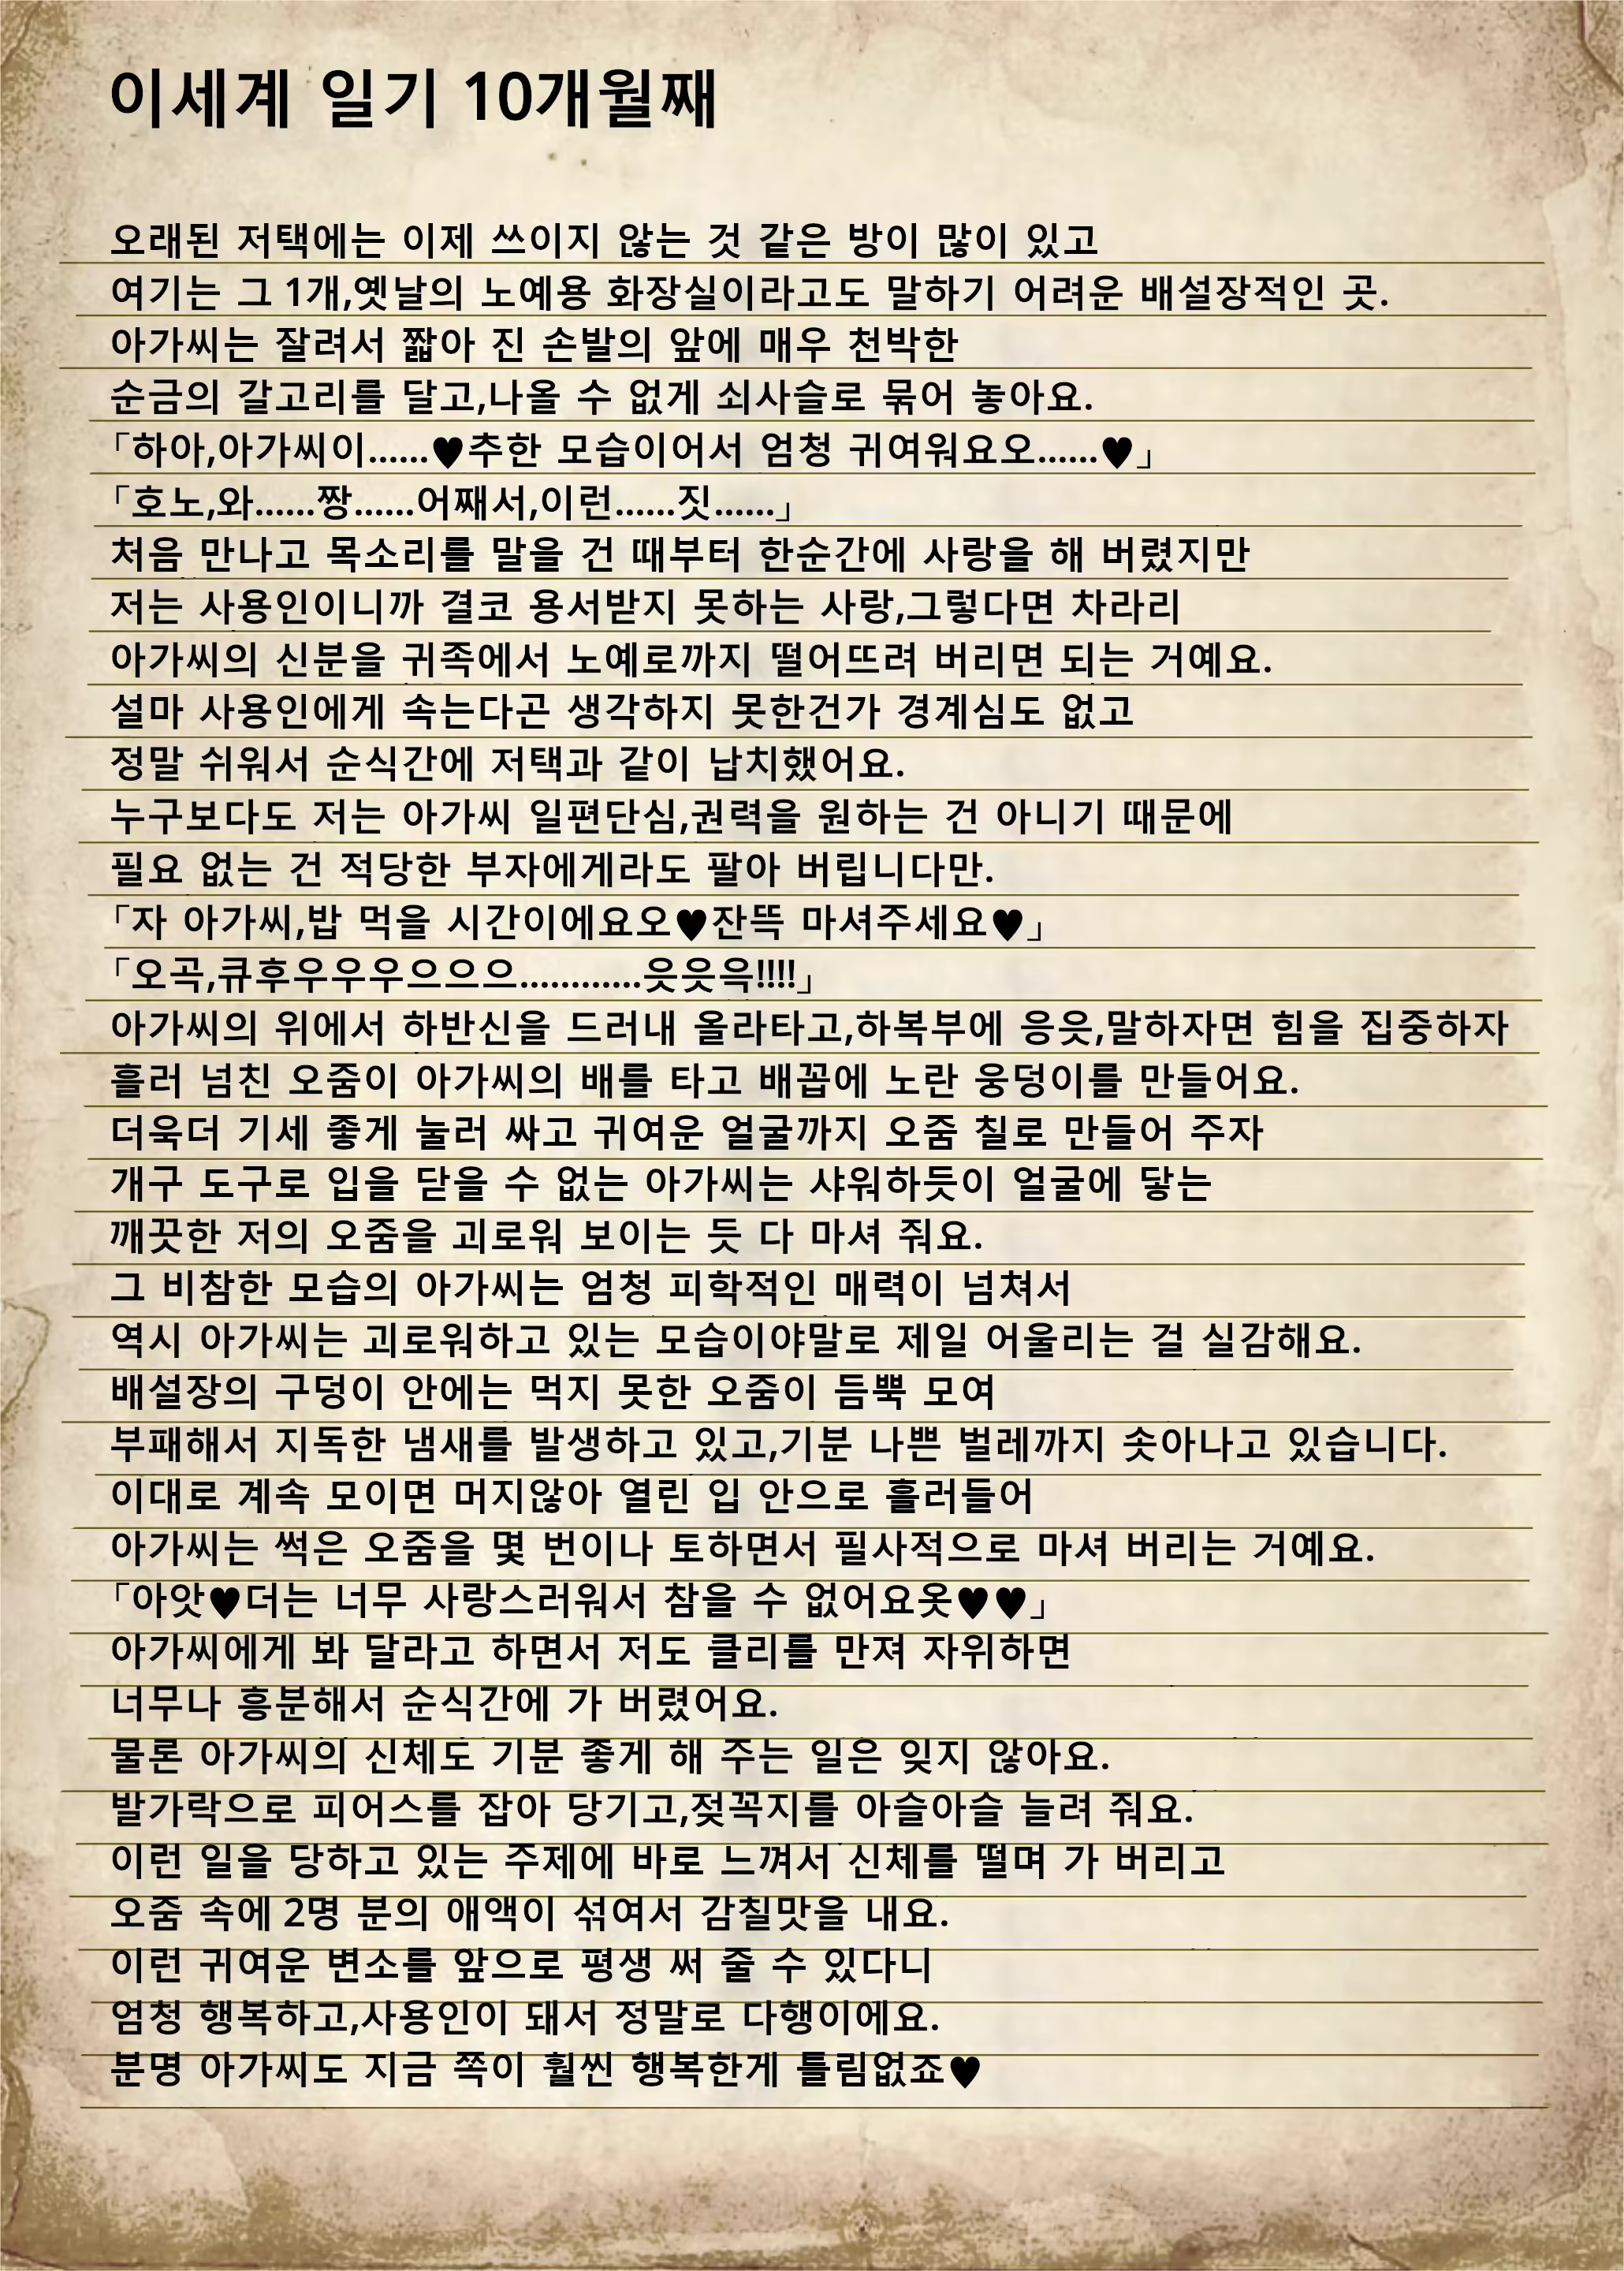 이세계 일기 10개월째
오래된 저택에는 이제 쓰이지 않는 것 같은 방이 많이 있고
여기는 그 1개,옛날의 노예용 화장실이라고도 말하기 어려운 배설장적인 곳.
아가씨는 잘려서 짧아 진 손발의 앞에 매우 천박한
순금의 갈고리를 달고,나올 수 없게 쇠사슬로 묶어 놓아요.
「하아,아가씨이……♥추한 모습이어서 엄청 귀여워요오……♥」
「호노,와……짱……어째서,이런……짓……」
처음 만나고 목소리를 말을 건 때부터 한순간에 사랑을 해 버렸지만
저는 사용인이니까 결코 용서받지 못하는 사랑,그렇다면 차라리
아가씨의 신분을 귀족에서 노예로까지 떨어뜨려 버리면 되는 거예요.
설마 사용인에게 속는다곤 생각하지 못한건가 경계심도 없고
정말 쉬워서 순식간에 저택과 같이 납치했어요.
누구보다도 저는 아가씨 일편단심,권력을 원하는 건 아니기 때문에
필요 없는 건 적당한 부자에게라도 팔아 버립니다만.
「자 아가씨,밥 먹을 시간이에요오♥잔뜩 마셔주세요♥」
「오곡,큐후우우우으으으…………읏읏윽!!!!」
아가씨의 위에서 하반신을 드러내 올라타고,하복부에 응읏,말하자면 힘을 집중하자
흘러 넘친 오줌이 아가씨의 배를 타고 배꼽에 노란 웅덩이를 만들어요.
더욱더 기세 좋게 눌러 싸고 귀여운 얼굴까지 오줌 칠로 만들어 주자
개구 도구로 입을 닫을 수 없는 아가씨는 샤워하듯이 얼굴에 닿는
깨끗한 저의 오줌을 괴로워 보이는 듯 다 마셔 줘요.
그 비참한 모습의 아가씨는 엄청 피학적인 매력이 넘쳐서
역시 아가씨는 괴로워하고 있는 모습이야말로 제일 어울리는 걸 실감해요.
배설장의 구덩이 안에는 먹지 못한 오줌이 듬뿍 모여
부패해서 지독한 냄새를 발생하고 있고,기분 나쁜 벌레까지 솟아나고 있습니다.
이대로 계속 모이면 머지않아 열린 입 안으로 흘러들어
아가씨는 썩은 오줌을 몇 번이나 토하면서 필사적으로 마셔 버리는 거예요.
「아앗♥더는 너무 사랑스러워서 참을 수 없어요옷♥♥」
아가씨에게 봐 달라고 하면서 저도 클리를 만져 자위하면
너무나 흥분해서 순식간에 가 버렸어요.
물론 아가씨의 신체도 기분 좋게 해 주는 일은 잊지 않아요.
발가락으로 피어스를 잡아 당기고,젖꼭지를 아슬아슬 늘려 줘요.
이런 일을 당하고 있는 주제에 바로 느껴서 신체를 떨며 가 버리고
오줌 속에 2명 분의 애액이 섞여서 감칠맛을 내요.
이런 귀여운 변소를 앞으로 평생 써 줄 수 있다니
엄청 행복하고,사용인이 돼서 정말로 다행이에요.
분명 아가씨도 지금 쪽이 훨씬 행복한게 틀림없죠♥